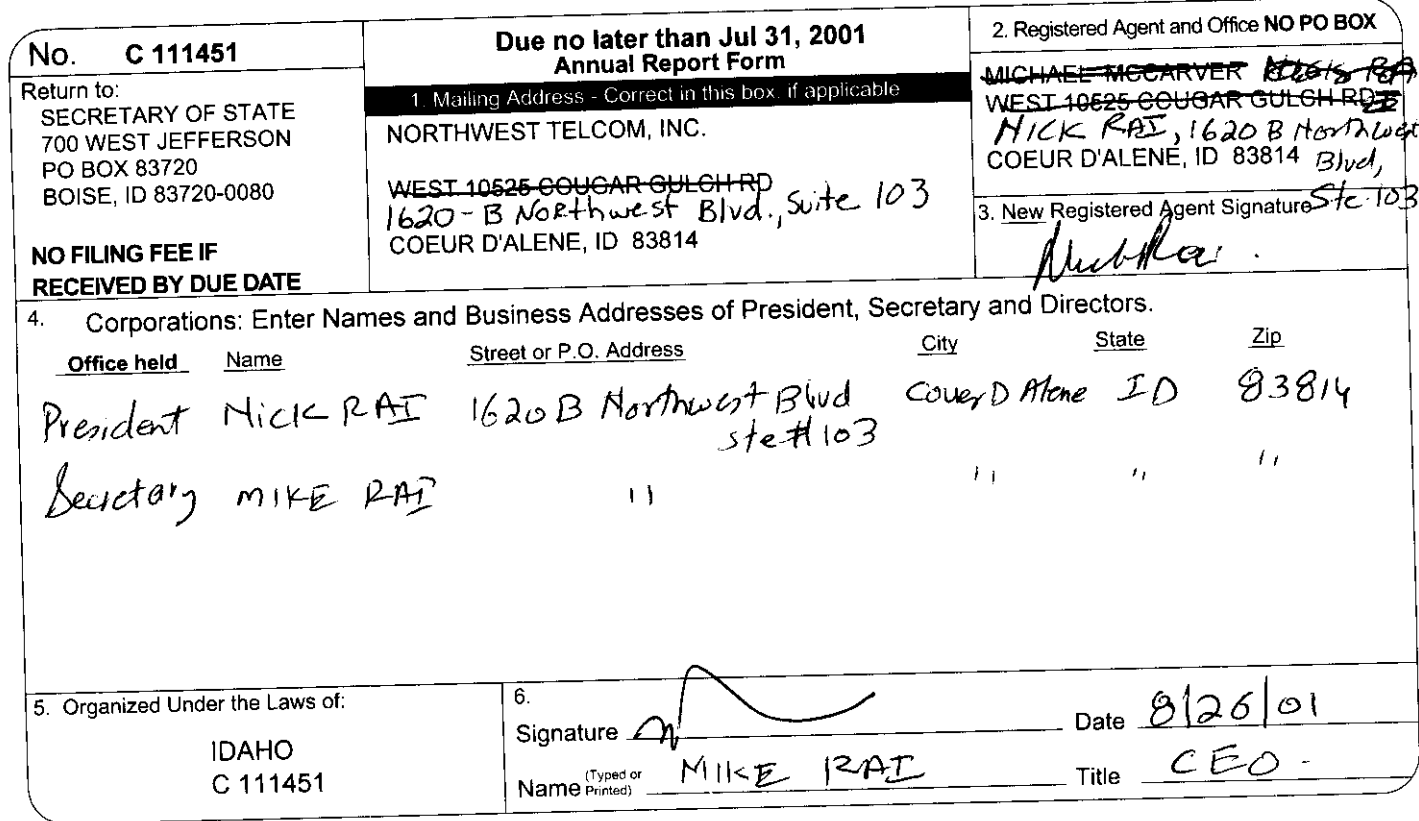 No. C 111451
Return to:
SECRETARY OF STATE
700 WEST JEFFERSON
PO BOX 83720
BOISE, ID 83720-0080
NO FILING FEE IF
RECEIVED BY DUE DATE
Due no later than Jul 31, 2001
Annual Report Form
1. Mailing Address - Correct in this box. if applicable
NORTHWEST TELCOM, INC.
WEST 10525 COUGAR GULCH RD
1620-B Northwest Blvd., Suite 103
COEUR D'ALENE, ID 83814
2. Registered Agent and Office NO PO BOX
MICHAEL MCCARVER
WEST 10525 COUGAR GULCH RD
NICK RAI, 1620 B Northwest
COEUR D'ALENE, ID 83814 Blvd,
Ste-103
3. New Registered Agent Signature
4. Corporations: Enter Names and Business Addresses of President, Secretary and Directors.
Office held Name Street or P.O. Address City State Zip
President Nick RAI 1620 B Northwest Blvd Couer D Alene ID 83814
ste #103
Secretary MIKE RAI " " " "
5. Organized Under the Laws of:
IDAHO
C 111451
6.
Signature Date 8/26/01
Name (Typed or Printed) MIKE RAI Title CEO -